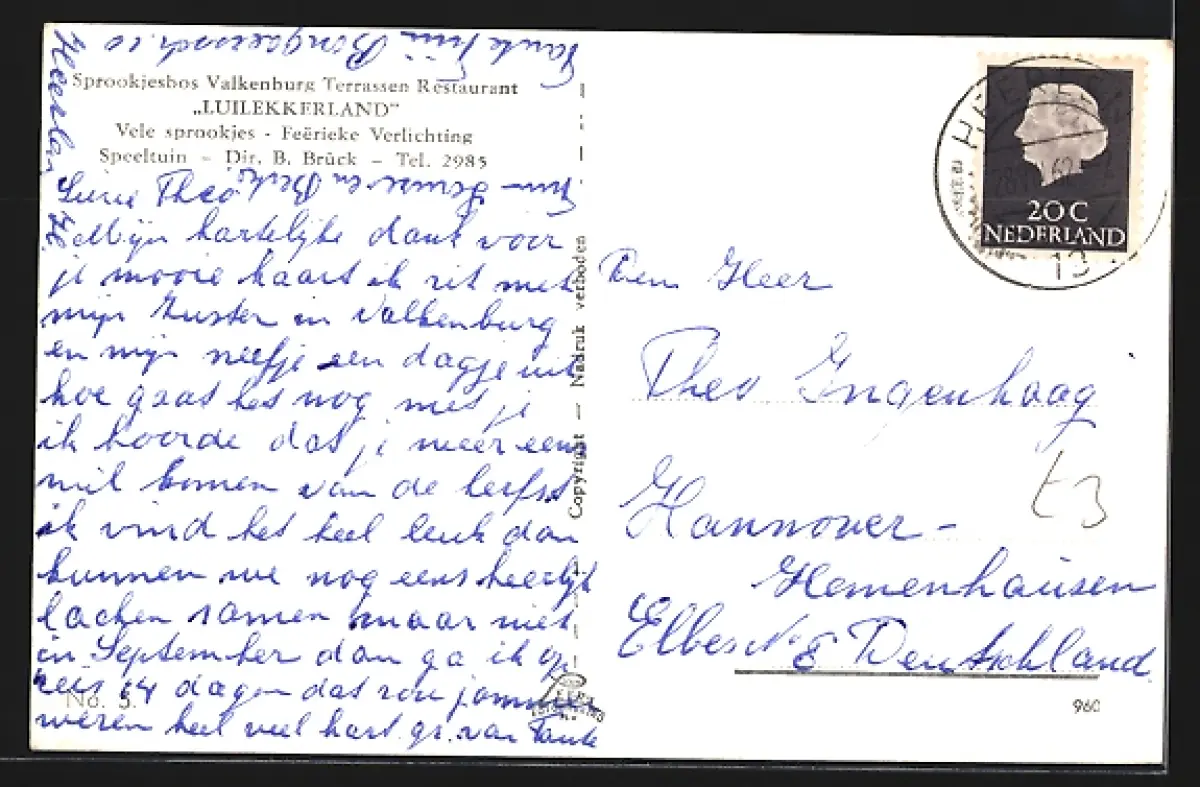 Sprookjesbos Valkenburg Terrassen Restaurant
„LUILEKKERLAND"
Vele sprookjes - Feërieke Verlichting
Speeltuin - Dir. B. Brück - Tel. 2985
Theo
Mijn hartelijke dank voor
je mooie kaart ik zit met
mijn zuster in Valkenburg
en mijn neefje een dagje uit
hoe gaat het nog met je
ik hoorde dat je weer eens
wil komen van de herfst
ik vind het heel leuk dan
kunnen we nog eens heerlijk
lachen samen maar niet
in September dan ga ik op
reis 14 dagen dat zou jammer
weren heel veel hart. gr. van Tante
No. 5.
Heerlen
Copyright - Nadruk verboden
HEERLEN
20 C
NEDERLAND
Den Heer
Theo Ingenhaag
Hannover-
Hemenhausen
Elbestr. 8 Deutschland
960